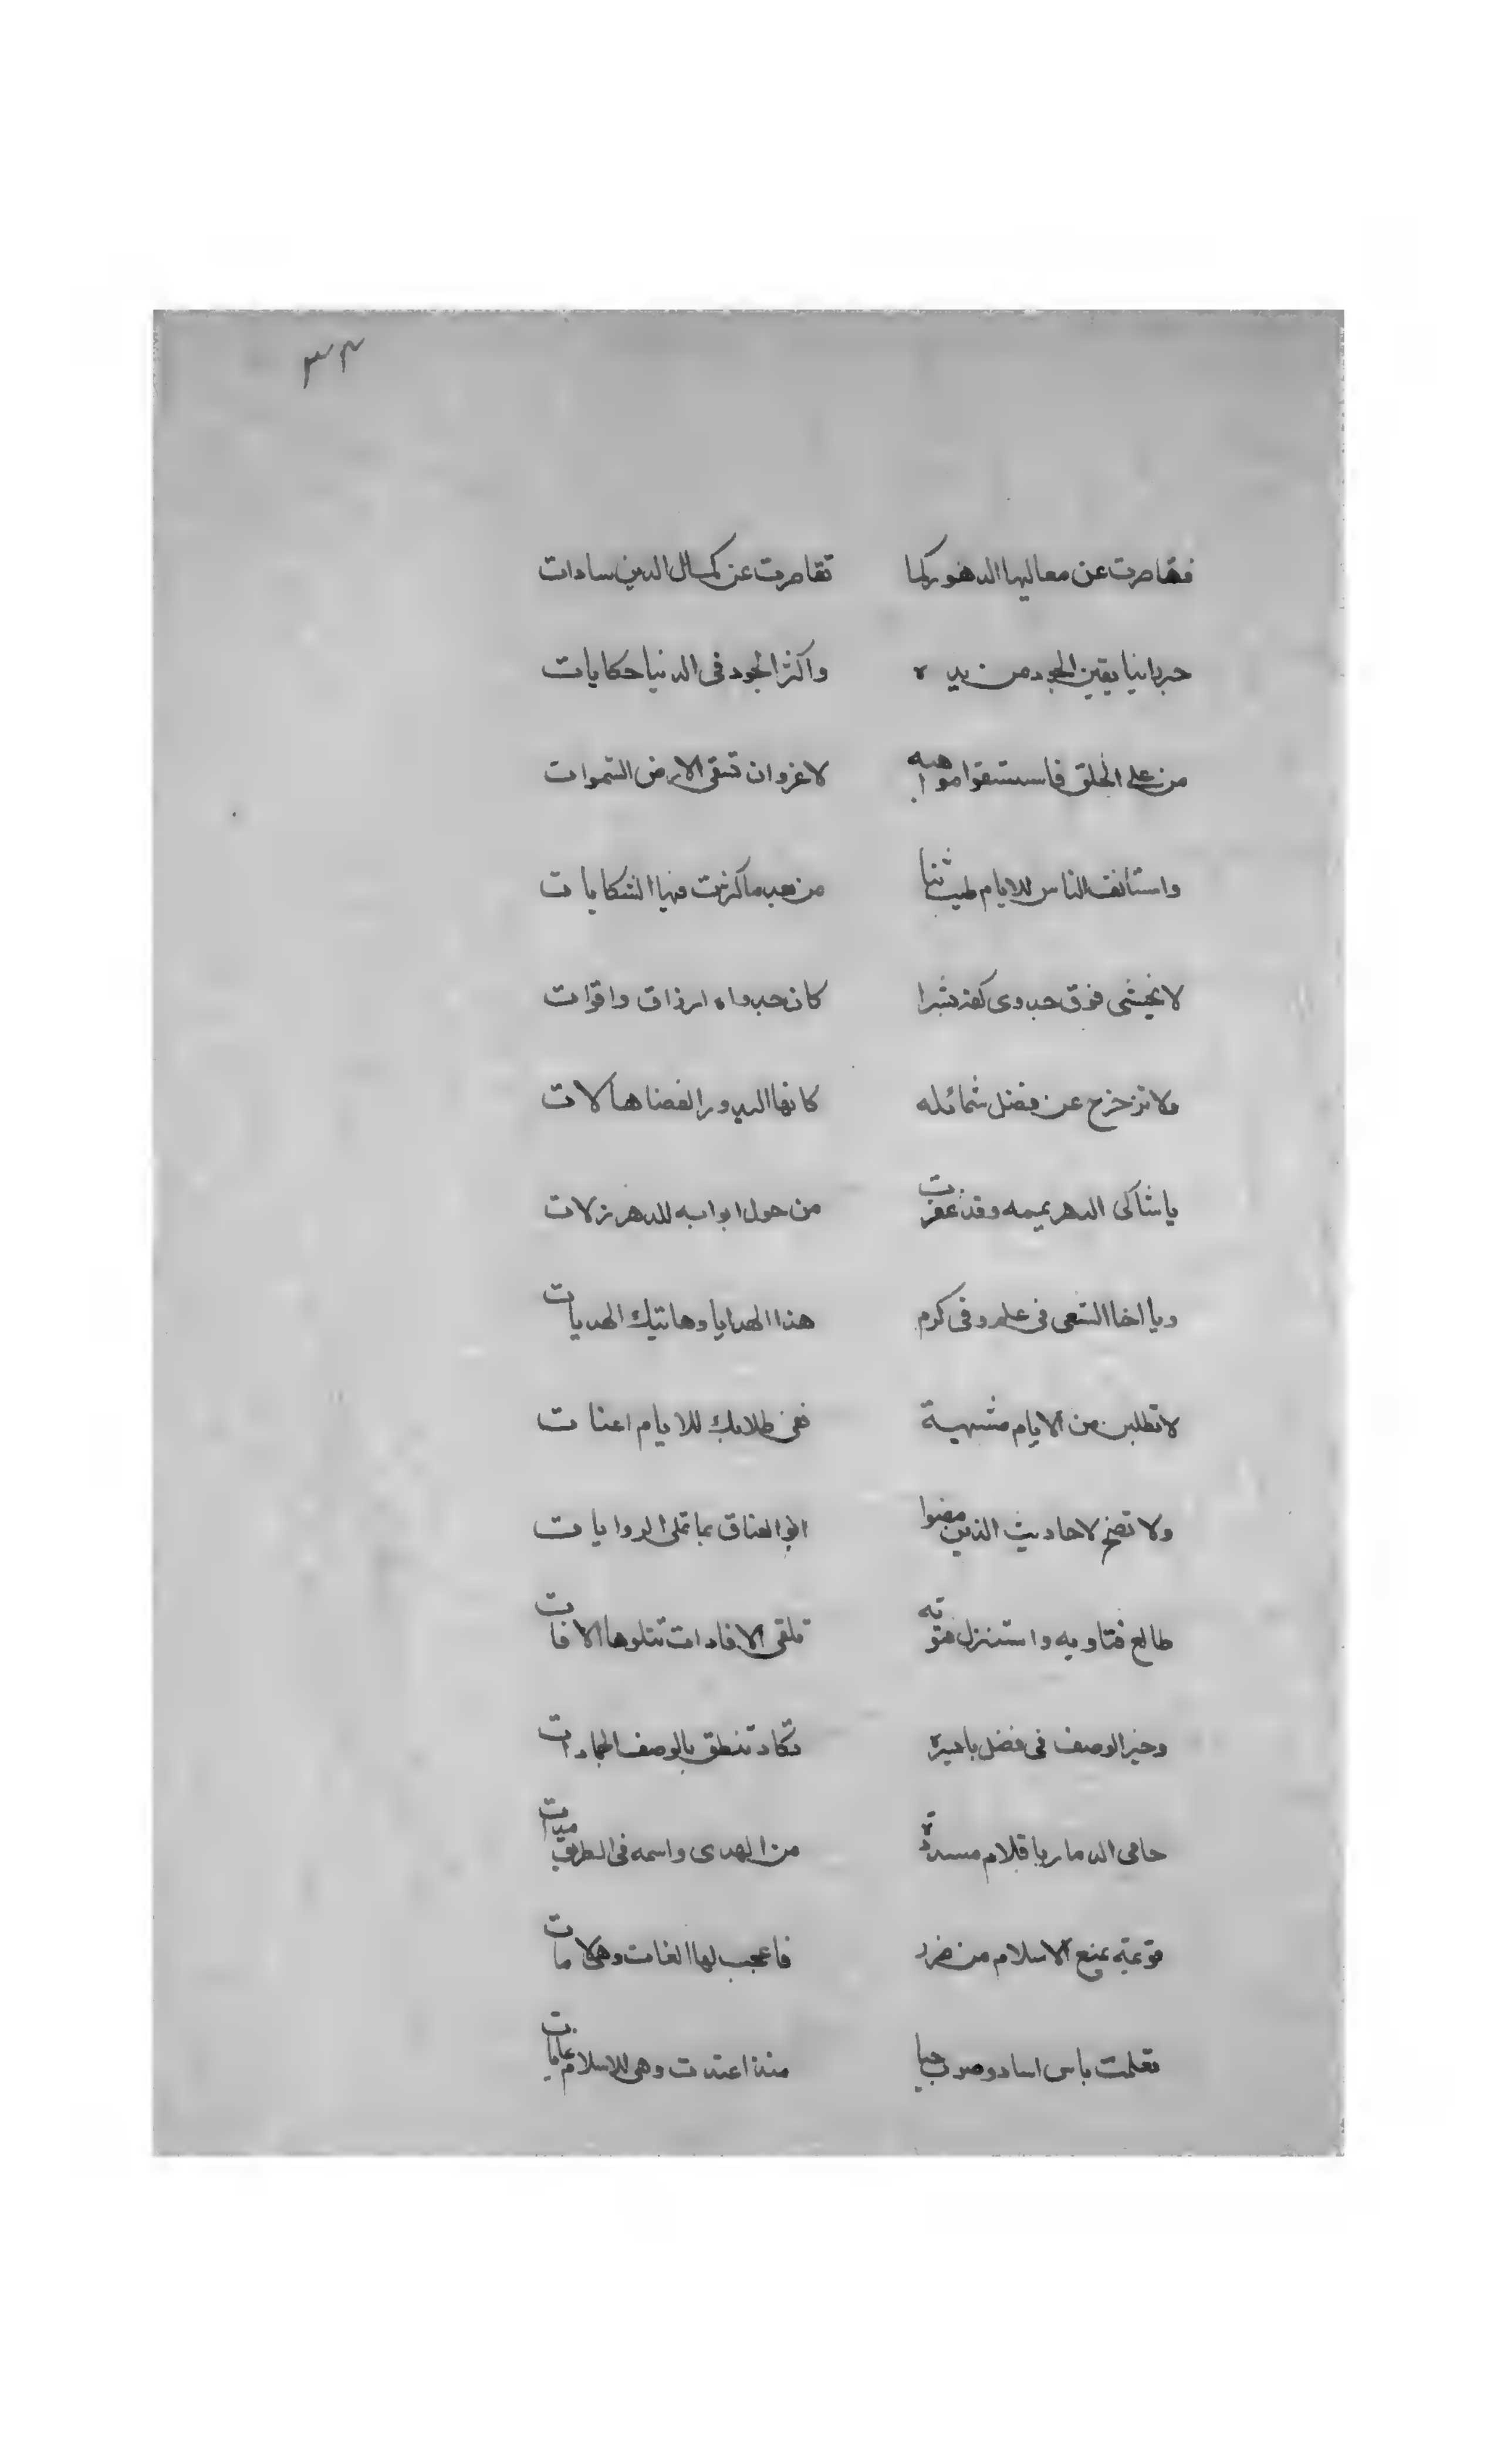 ٣٣
فتقاصرت عن معاليها الدهور كما تقاصرت عن كمال الدين سادات
حبر اتيا يقين الجود من يده واكثر الجود فى الدنيا حكايات
من على الخلق فاستسقوا مواهبه لا غرو ان تسقى الارض السموات
واستأنف الناس للايام طيب ثنا من بعد ما كثرت فيها الشكايات
لا يختشى فوق جدوى كفه بشرا كان جدواه ارزاق واقوات
ولا تزحزح عن فضل شمائله كانها البدور الفضا هالات
يا شاكى الدهر يممه وقد غفرت من حول ابوابه للدهر زلات
ويا اخا السعى فى علم وفى كرم هذا الهدايا وهاتيك الهديات
لا تطلبن من الايام مشبهه ففى طلابك للايام اعنات
ولا تصخ لاحاديث الذين مضوا الوى العناق بما تملى الروايات
طالع فتاويه واستنزل فتوته تلقى الافادات تتلوها الافات
وحبر الوصف فى فضل باهره تكاد تنطق بالوصف الجمادات
حامى الدمار باقلام مسددة من الهدى واسمه فى الطرق مدات
قويمة تمنع الاسلام من ضرر فاعجب لها الفات وهى لامات
تعلمت باس اساد وصوب حيا منذ اعتدت وهى للاسلام غابات